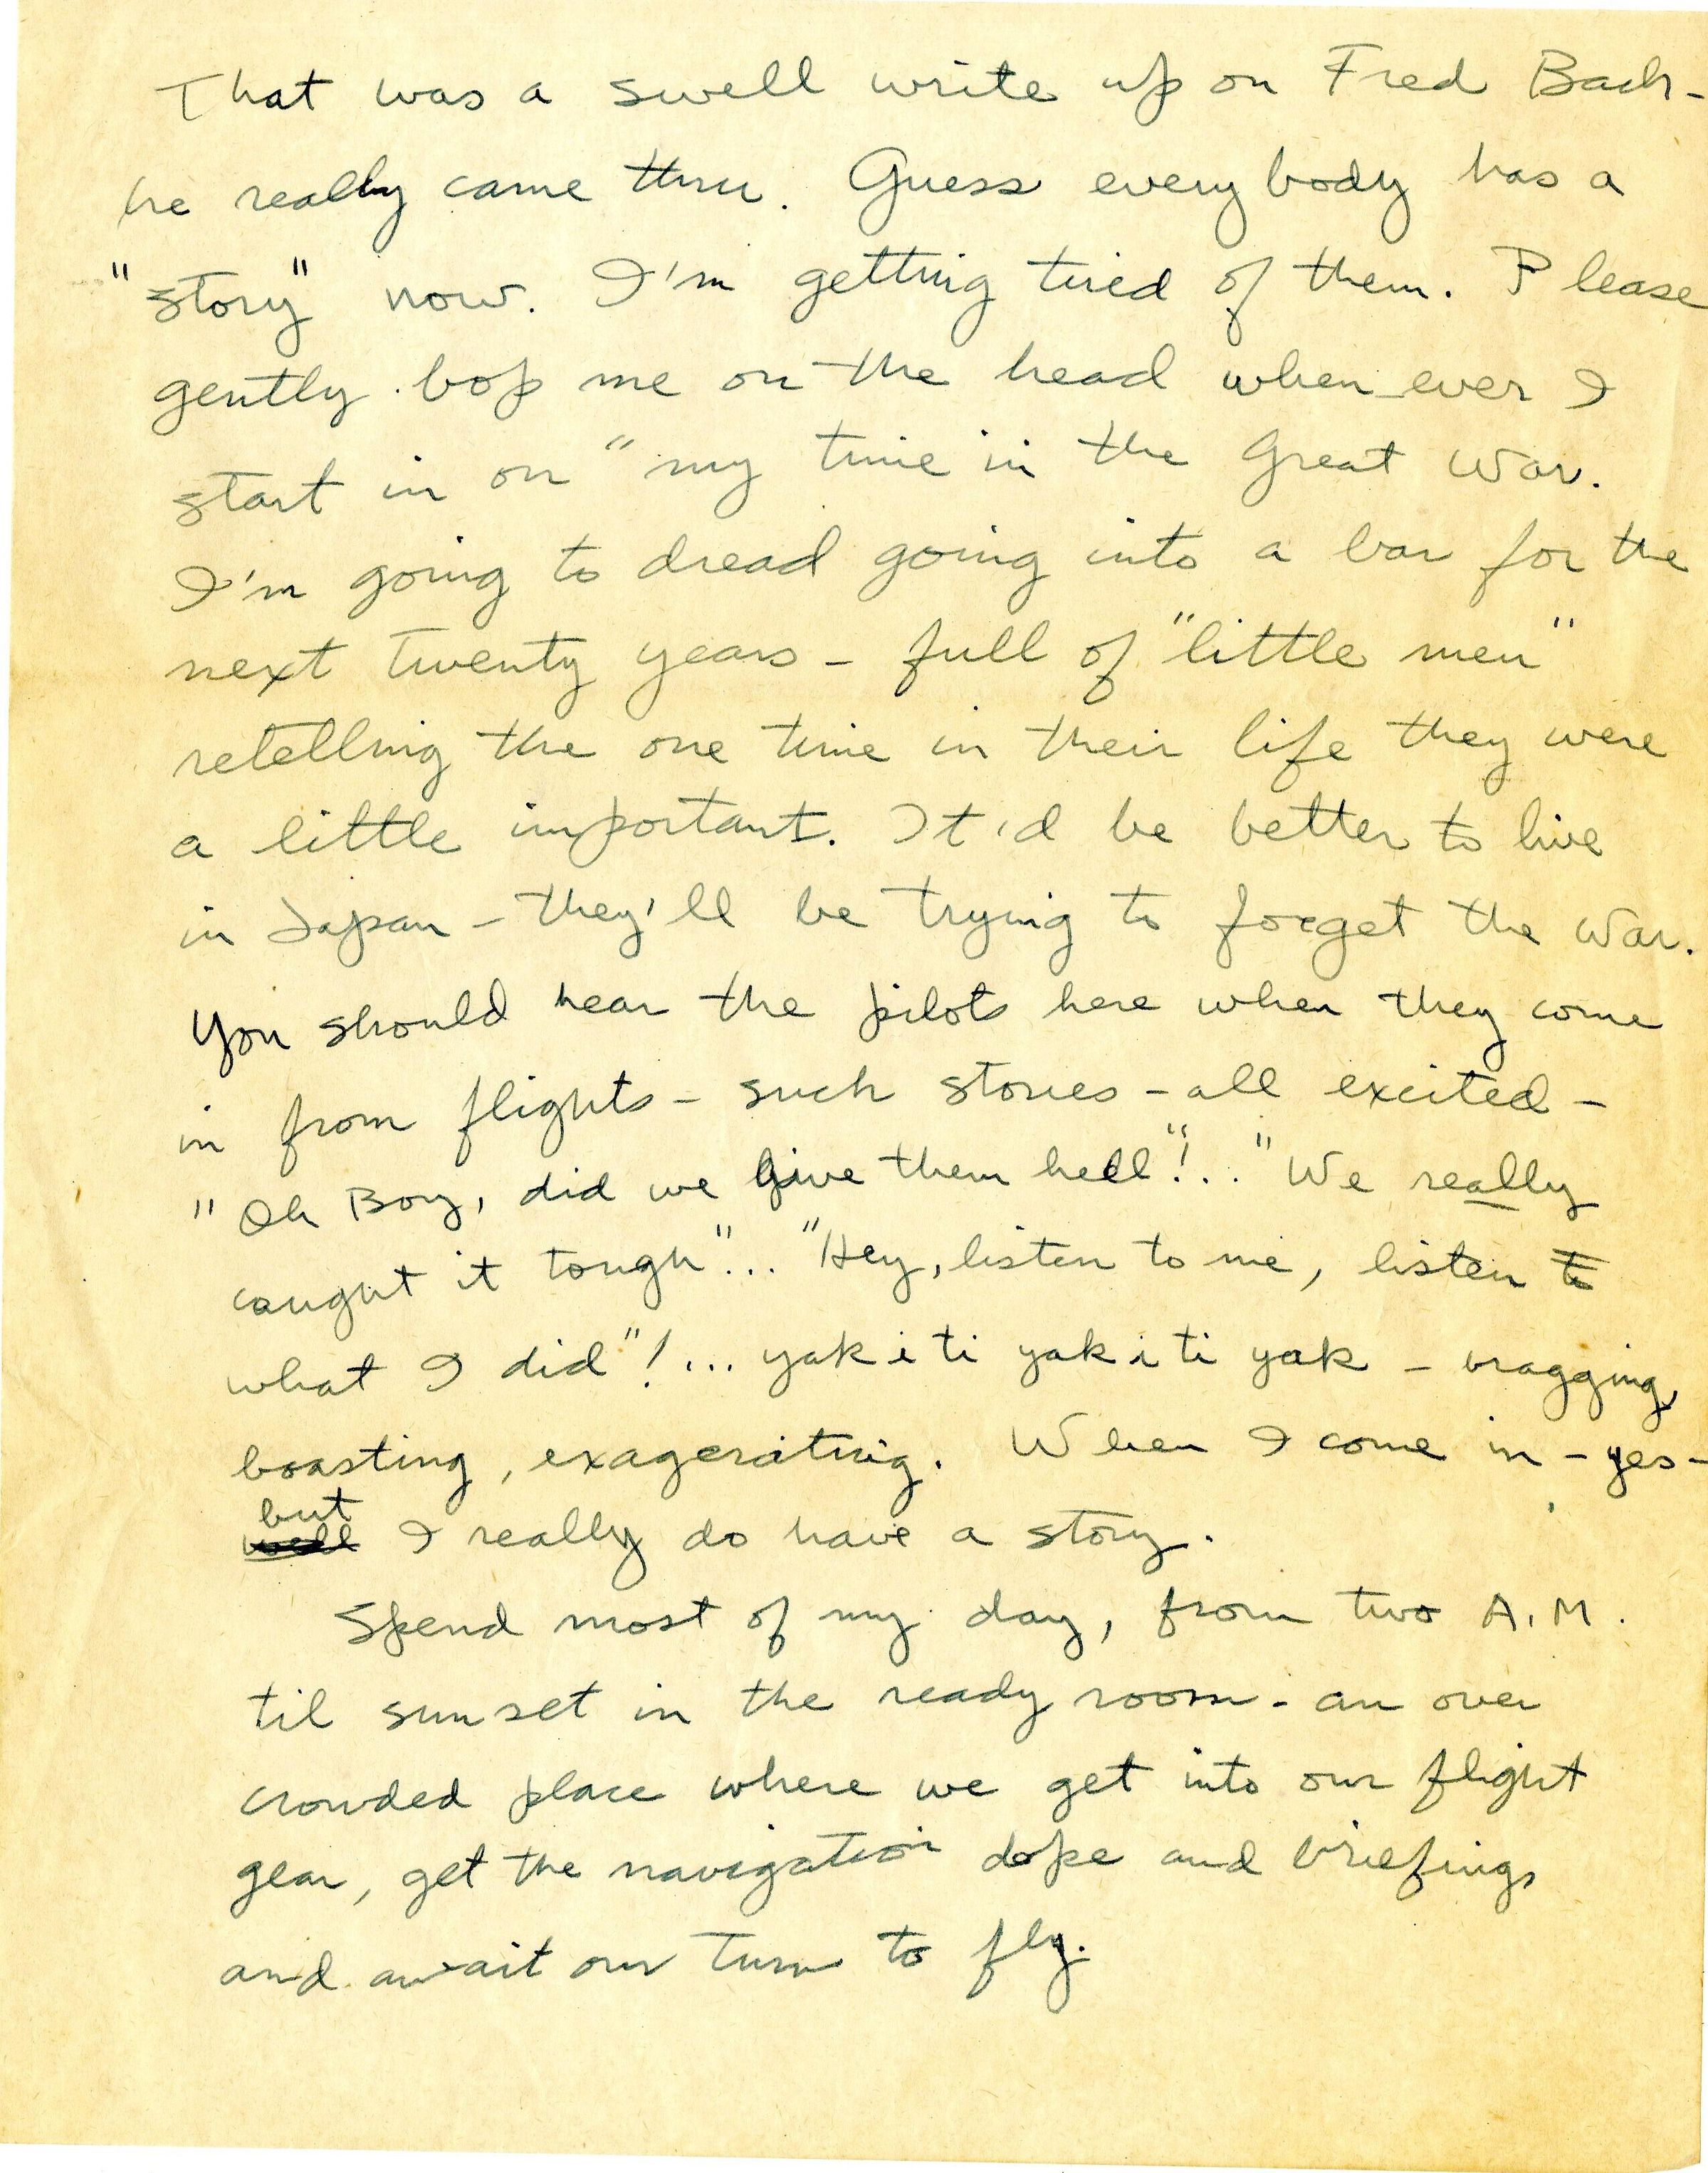 That was a swell write up on Fred Bach-
he really came thru. Guess everybody has a
"story" now. I'm getting tired of them. Please
gently bop me on the head when ever I
start in on "my time in the Great War.
I'm going to dread going into a bar for the
next twenty years - full of "little men"
retelling the one time in their life they were
a little important. It'd be better to live
in Japan - they'll be trying to forget the war.
You should hear the pilots here when they come
in from flights - such stories - all excited -
"Oh Boy, did we give them hell"!.. "We really
caught it tough"... "Hey, listen to me, listen to
what I did"!... yak i ti yak i ti yak - bragging,
boasting, exagerating. When I come in - yes -
but
well I really do have a story.
Spend most of my day, from two A.M.
til sunset in the ready room - an over
crowded place where we get into our flight
gear, get the navigation dope and briefings
and await our turn to fly.